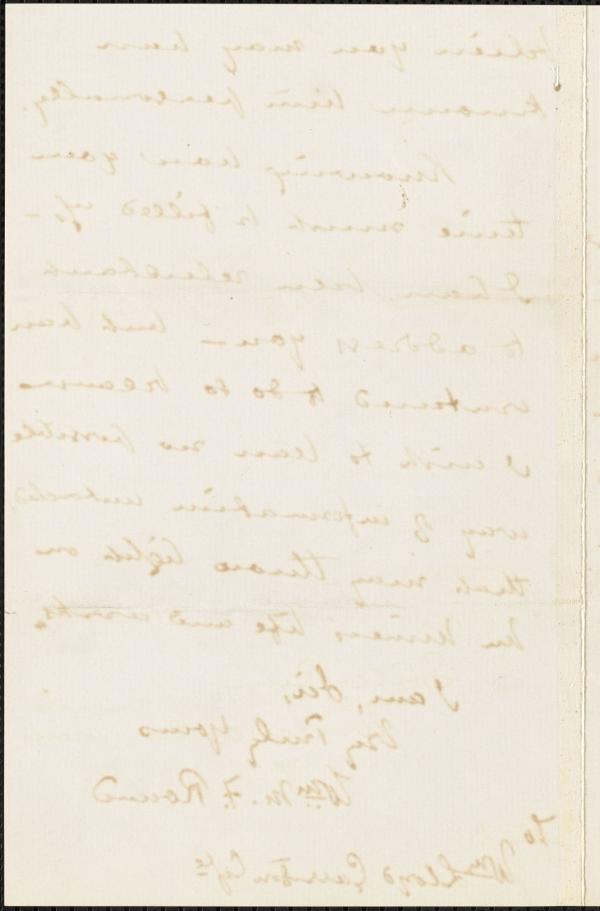 which you may have
known him personally.
Knowing how your
time must be filled up –
I have been reluctant
to address you – but have
ventured to do so because
I wish to leave no possible
way of information untouched
that may throw light on
his life and works.
I am, Sir,
Very Truly Yours
Wm. M. F. Round
To
Wm Lloyd Garrison Esq.